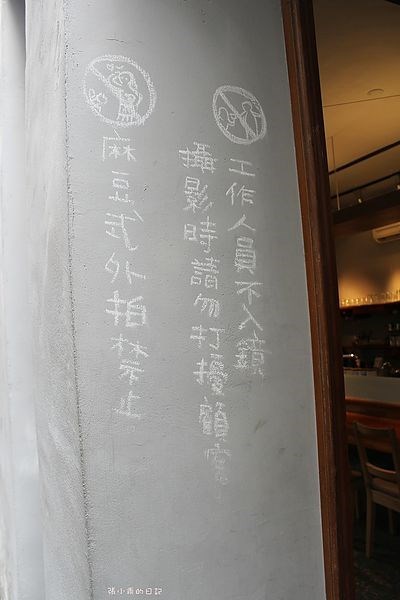 工作人員不入鏡
攝影時請勿打擾顧客
麻豆式外拍禁止
張小青的日記